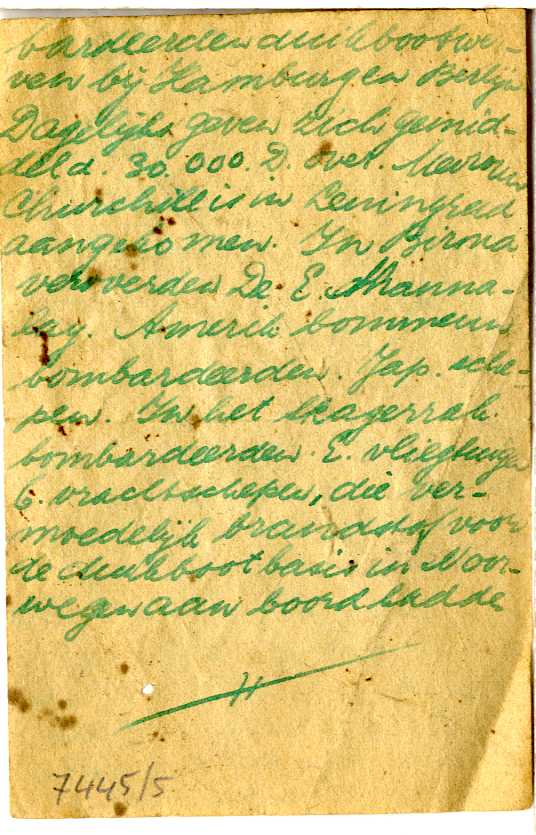 bardeerden duikbootwer-
ven bij Hamburg en Berlijn
Dagelijks geven zich gemid-
deld. 30.000. D. over. Mevrouw
Churchill is in Leningrad
aangekomen. In Birma
veroverden De E.
Amerik bommenw
bombardeerden. Jap. sche-
pen. In het Skagerrak.
bombardeerden. E. vliegtuigen
6. vrachtschepen, die ver-
moedelijk brandstof voor
de duikbootbasis in Noor-
wegen aan boord hadden
7445/5